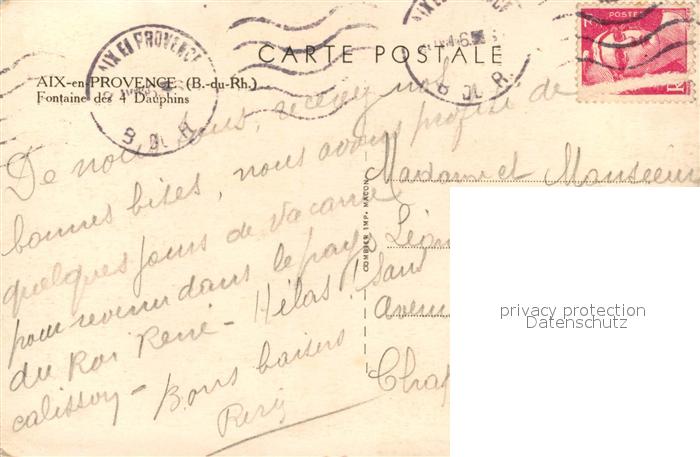 CARTE POSTALE
AIX-en-PROVENCE (B.-du-Rh.)
Fontaine des 4 Dauphins
AIX EN PROVENCE
B. DU R.
AIX EN PROVENCE
B. DU R.
POSTES
De nous tous, recevez nos
bonnes bises, nous avons profité de
quelques jours de vacance
pour revenir dans le pays
du Roi René - Hélas! sans
calisson - Bons baisers
COMBIER IMP. MACON
Madame et Monsieur
Léon
Aven
Chat
privacy protection
Datenschutz